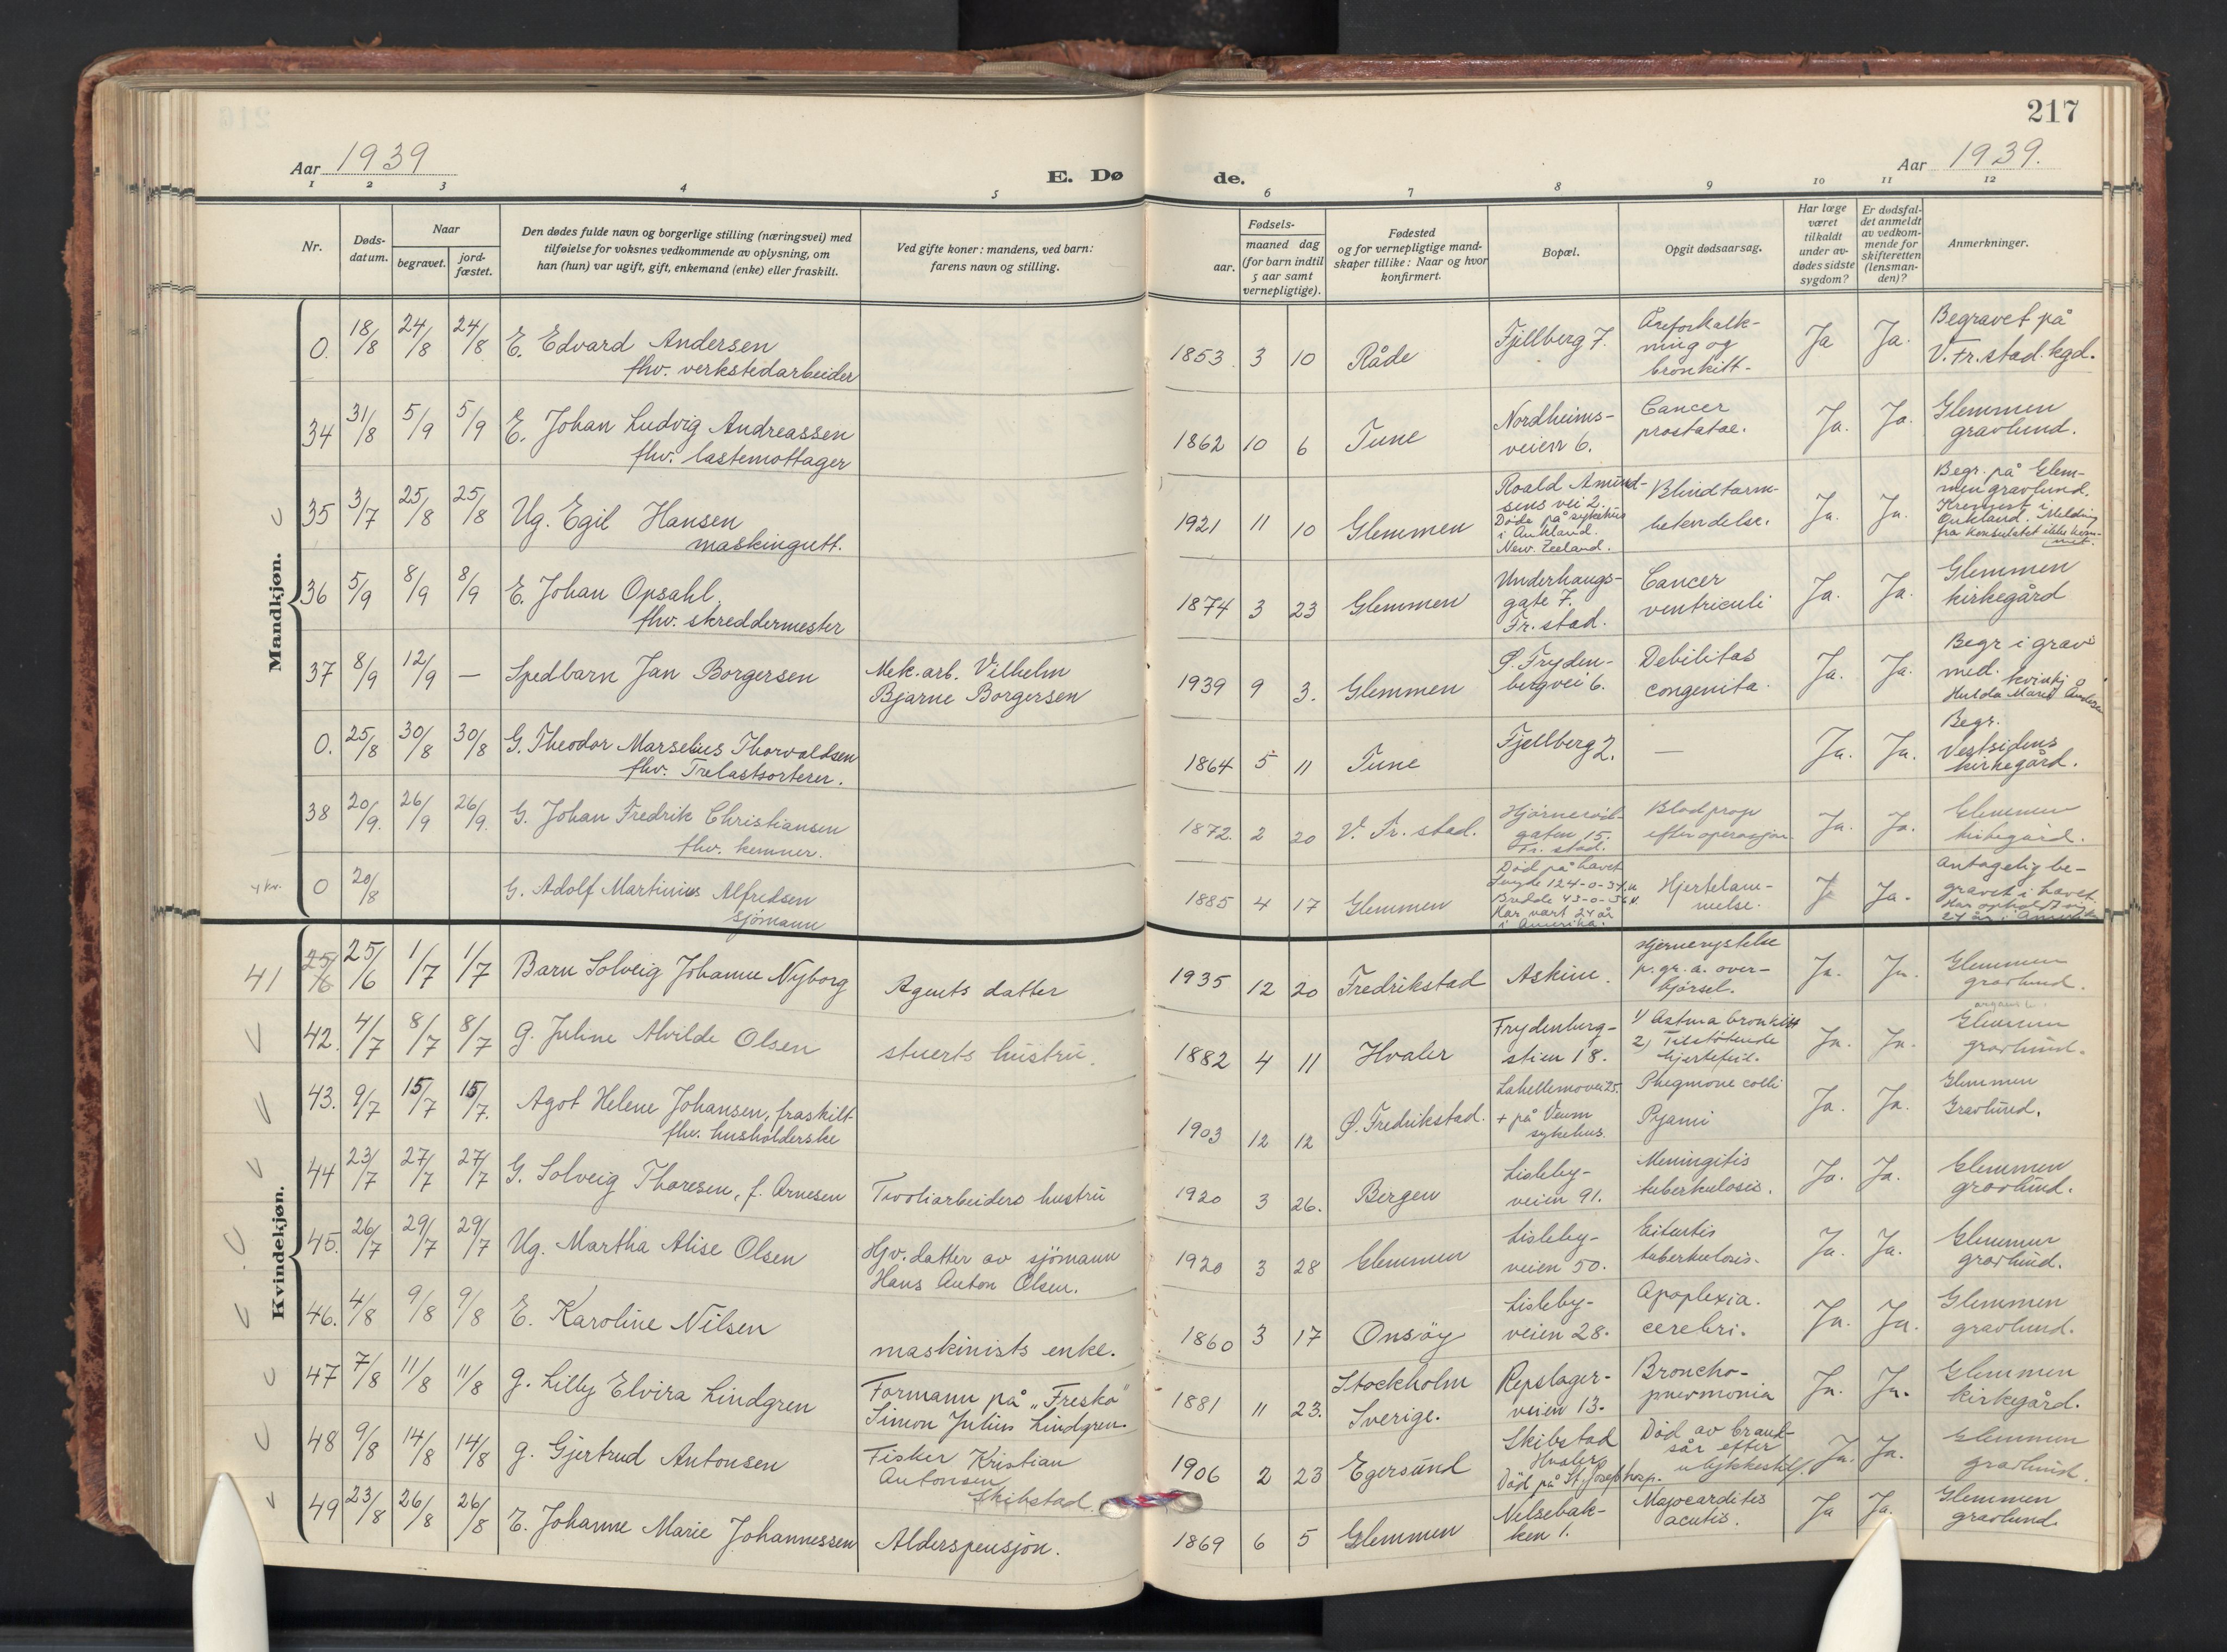 217
Aar 1939
E. Dø
de.
Aar 1939.
1 2 3 4 5 6 7 8 9 10 11 12
Nr.
Døds-
datum.
Naar
begravet.
jord-
fæstet.
Den dødes fulde navn og borgerlige stilling (næringsvei) med
tilføielse for voksnes vedkommende av oplysning, om
han (hun) var ugift, gift, enkemand (enke) eller fraskilt.
Ved gifte koner: mandens, ved barn:
farens navn og stilling.
Fødsels-
aar.
maaned dag
(for barn indtil
5 aar samt
vernepligtige).
Fødested
og for vernepligtige mand-
skaper tillike: Naar og hvor
konfirmert.
Bopæl.
Opgit dødsaarsag.
Har læge
været
tilkaldt
under av-
dødes sidste
sygdom?
Er dødsfal-
det anmeldt
av vedkom-
mende for
skifteretten
(lensman-
den)?
Anmerkninger.
Mandkjøn.
0. 18/8 24/8 24/8 E. Edvard Andersen
fhv. verkstedarbeider
1853. 3 10 Råde
Fjellberg 7.
Åreforkalk-
ning og
bronkitt-
Ja Ja.
Begravet på
V. Fr.stad. kgd.
34 31/8 5/9 5/9 E. Johan Ludvig Andreassen
fhv. lastemottager
1862 10 6 Tune
Nordheims-
veien 6.
Cancer
prostatae.
Ja. Ja.
Glemmen
gravlund.
35 3/7 25/8 25/8 Ug. Egil Hansen
maskingutt.
1921 11 10 Glemmen
Roald Amund-
sens vei 2.
Døde på sykehus
i Aukland.
New. Zeeland.
Blindtarm-
betendelse.
Ja. Ja.
Begr. på Glem-
men gravlund.
Kremert i
Aukland. Melding
fra konsulatet ikke kom-
met.
36 5/9 8/9 8/9 E. Johan Opsahl.
fhv. skreddermester
1874 3 23 Glemmen
Underhaugs-
gate 7.
Fr. stad.
Cancer
ventriculi
Ja. Ja.
Glemmen
kirkegård
37 8/9 12/9 — Spedbarn Jan Borgersen
Mek. arb. Vilhelm
Bjarne Borgersen
1939 9 3. Glemmen
Ø. Fryden-
bergvei 6.
Debilitas
congenita.
Ja. Ja.
Begr i grav
med. kvinkj
Hulda Marie Andersen
0. 25/8 30/8 30/8 G. Theodor Marselius Thorvaldsen
fhv. Trelastsorterer.
1864 5 11 Tune
Fjellberg 2.
—
Ja. Ja.
Begr.
Vestsidens
kirkegård.
38 20/9. 26/9 26/9. G. Johan Fredrik Christiansen
fhv. kemner.
1872. 2 20 V. Fr. stad.
gaten 15.
Fr. stad.
Blodprop
efter operasjon.
Ja. Ja.
Glemmen
kirkegård.
0 20/8 G. Adolf Martinius Alfredsen
sjømann
1885 4 17 Glemmen
Død på havet
Lengde 124-0-34
Bredde 43-0-36
Har vært 24 år
i Amerika.
Hjertelam-
melse.
J Ja.
Antagelig be-
gravet i havet.
Har opholdt sig
24 år i Amerika
Kvindekjøn.
41 25/6 25/6 1/7 1/7 Barn Solveig Johanne Nyborg
Agents datter
1935 12 20 Fredrikstad
Askim.
Hjernerystelse
p. gr. a. over-
kjørsel.
Ja. Ja.
Glemmen
gravlund.
42. 4/7 8/7 8/7 g. Juline Alvilde Olsen
stuerts hustru.
1882 4 11 Hvaler
Frydenberg-
stien 18.
1) Astma bronkitt
2) Tilstøtende
hjertefeil.
Ja. Ja.
Glemmen
gravlund.
43. 9/7 15/7 15/7. Agot Helene Johansen, fraskilt
fhv. husholderske
1903 12 12 Ø. Fredrikstad.
Lahellemovei 25.
+ på Veum
sykehus.
Phegmone colli
Pyami
Ja. Ja.
Glemmen
Gravlund.
44 23/7 27/7 27/7 G. Solveig Thoresen, f. Arnesen
Tivoliarbeiders hustru
1920 3 26. Bergen
Lisleby-
veien 91.
Meningitis
tuberkulosis.
Ja. Ja.
Glemmen
gravlund.
45. 26/7 29/7 29/7 Ug. Martha Alise Olsen
Hjv. datter av sjömann
Hans Anton Olsen.
1920 3 28 Glemmen
Lisleby-
veien 50.
tuberkulosis.
Ja. Ja.
Glemmen
gravlund.
46. 4/8 9/8 9/8 E. Karoline Nilsen
maskinists enke.
1860 3 17 Onsøy
Lisleby-
veien 28.
Apoplexia.
cerebri.
Ja. Ja.
Glemmen
gravlund.
47 7/8 11/8 11/8 g. Lilly Elvira Lindgren
Formann på „Fresko"
Simon Julius Lindgren.
1881 11 23. Stockholm
Sverige.
Repslager-
veien 13.
Broncho-
pneumonia
Ja. Ja.
Glemmen
kirkegård.
48 9/8 14/8 14/8 g. Gjertrud Antonsen
Fisker Kristian
Antonsen
Skibstad.
1906 2 23 Egersund
Skibstad
Hvaler
Död på St. Josef hosp.
Död av brand-
sår efter
ulykkestilf.
Ja. Ja.
Glemmen
gravlund.
49 23/8 26/8 26/8 E. Johanne Marie Johannessen
Alderspensjon.
1869 6 5 Glemmen
Nelsebak-
ken 1.
Myocarditis
acutis.
Ja Ja.
Glemmen
gravlund.